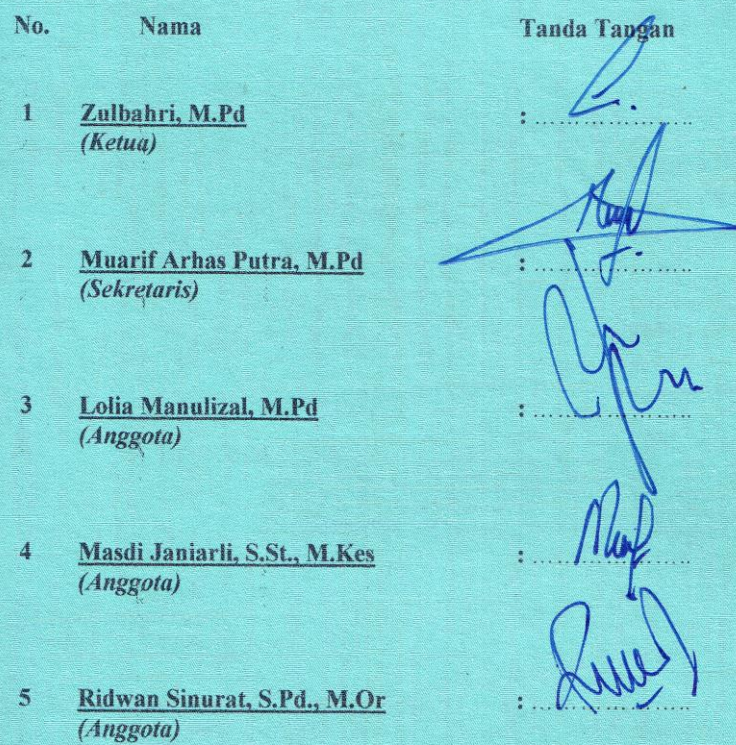 No. Nama Tanda Tangan
1 Zulbahri, M.Pd : ....................
(Ketua)
2 Muarif Arhas Putra, M.Pd : ....................
(Sekretaris)
3 Lolia Manulizal, M.Pd : ....................
(Anggota)
4 Masdi Janiarli, S.St., M.Kes : ....................
(Anggota)
5 Ridwan Sinurat, S.Pd., M.Or : ....................
(Anggota)